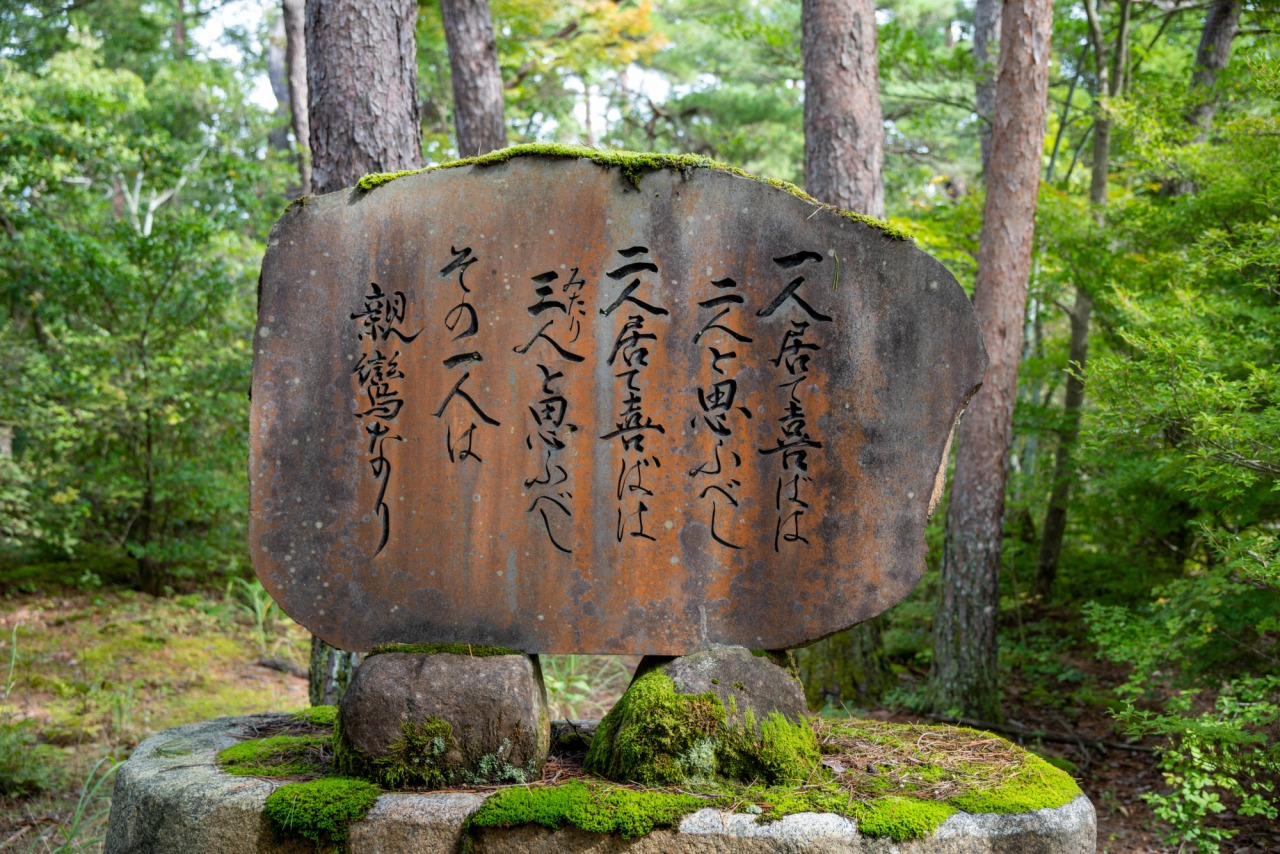 一人居て喜ばは
二人と思ふべし
二人居て喜ばは
三人と思ふべし
みたり
その一人は
親鸞なり